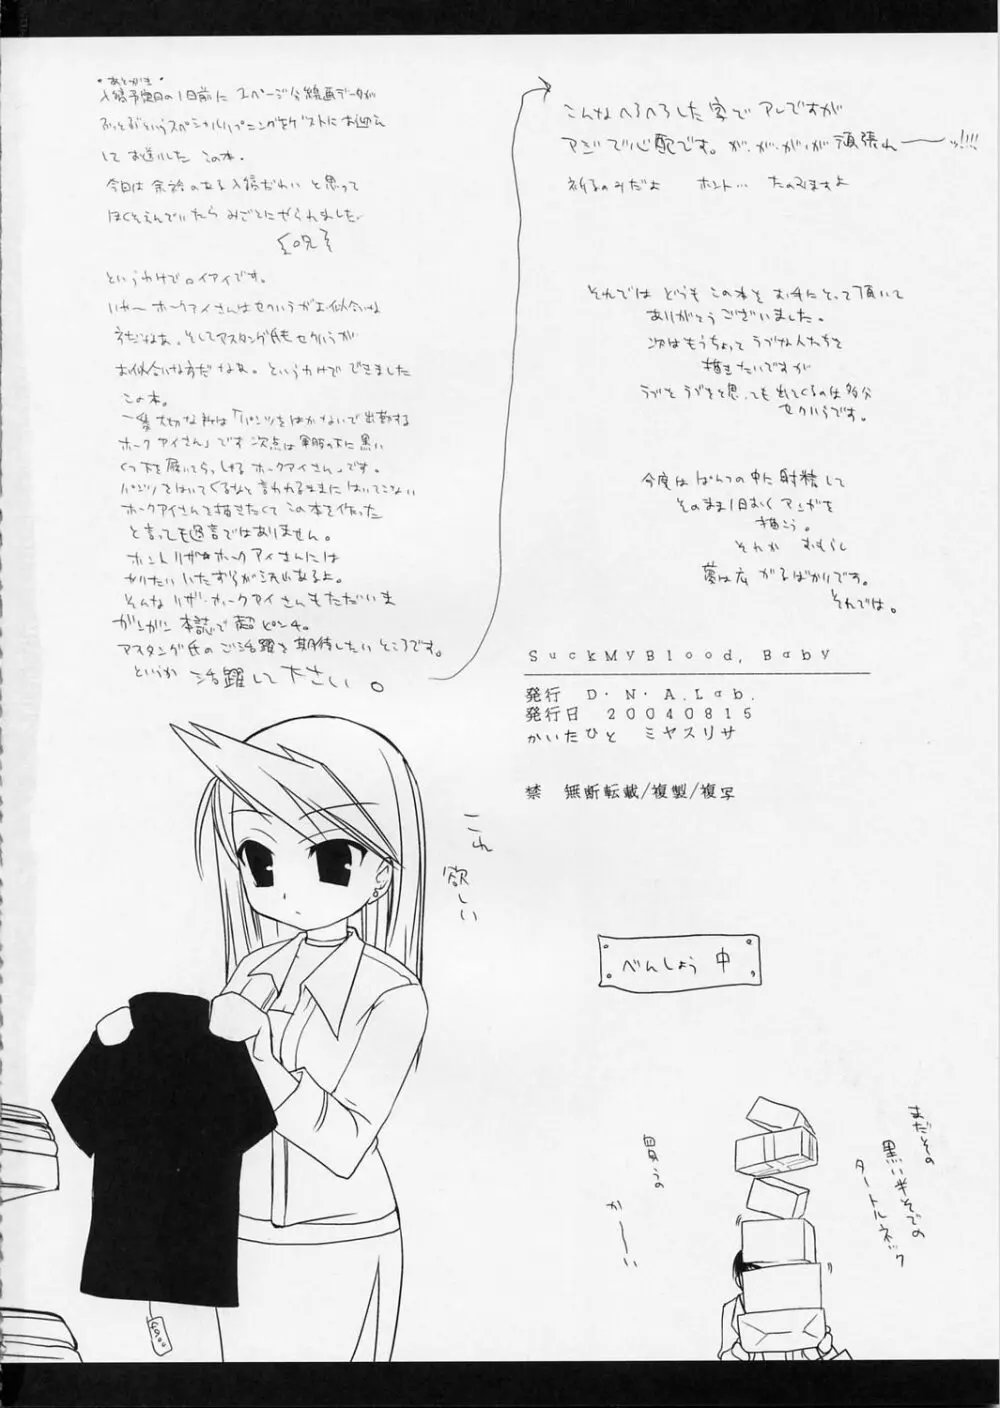 ・あとがき・
入稿予定日の1日前に 2ページ分線画データが
ぶっとぶというスペシャルハプニングをゲストにお迎え
して お送りした この本。
今回は 余裕のある入稿だわい と思って
ほくそえんでいたら みごとにやられました
という訳で ロイアイです。
いや〜 ホークアイさんはセクハラがお似合いな
方だなぁ。そしてマスタング氏もセクハラが
お似合いな方だなぁ。というわけで できました
この本。
一番大切な所は「パンツをはかないで出勤する
ホークアイさん」です 次点は軍服の下に黒い
くつ下を履いてらっしゃるホークアイさん」です。
パンツをはいてくるなと言われるままに はいてこない
ホークアイさんを描きたくて この本を作った
と言っても過言ではありません。
ホント リザ・ホークアイさんには
やりたい いたずらが沢山あるよ。
そんな リザ・ホークアイさんもただいま
ガンガン 本誌で 超ピンチ。
マスタング氏の ご活躍を期待したい ところです。
というか 活躍して下さい。
こんなへろへろした字で アレですが
マジで心配です。が、が、が、が 頑張れ———ッ!!!!
祈るのみだよ ホント… たのみますよ
それでは どうも この本を お手にとって頂いて
ありがとうございました。
次はもうちょって ラブな人たちを
描きたいですが
ラブをラブをと思っても 出てくるのは多分
セクハラです。
今度は ぱんつの中に射精して
そのまま1日おく マンガを
描こう。
それか おもらし
夢は広がるばかりです。
それでは。
SuckMyBlood, Baby
発行 D・N・A.Lab.
発行日 20040815
かいたひと ミヤスリサ
禁 無断転載/複製/複写
これ
欲しい
べんしょう 中
まだその
黒い半そでの
タートルネック
買うの
か〜〜い